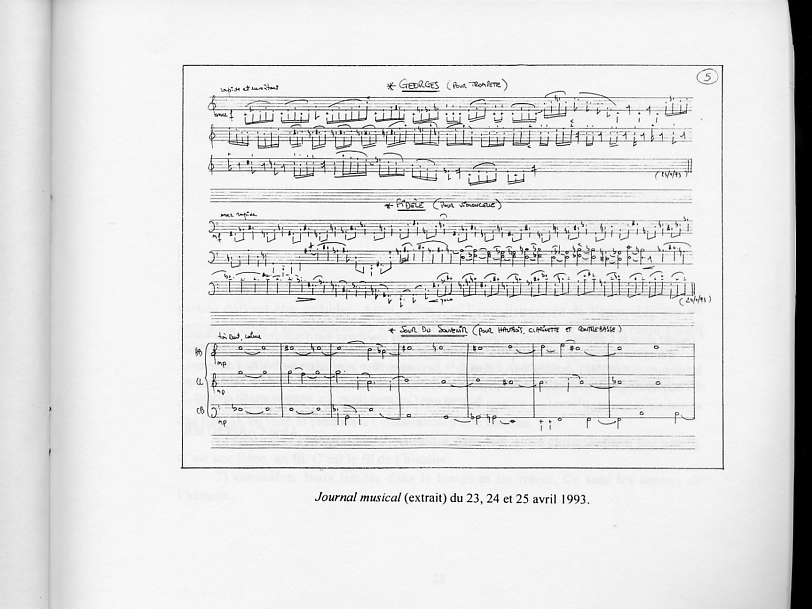 5
* GEORGES (POUR TROMPETTE)
rapide et
(23/4/93)
* FIDÈLE (POUR VIOLONCELLE)
assez rapide
mf
(24/4/93)
* JOUR DU SOUVENIR (POUR HAUTBOIS, CLARINETTE ET CONTREBASSE)
très lent, calme
mp
CL
mp
CB
mp
Journal musical (extrait) du 23, 24 et 25 avril 1993.